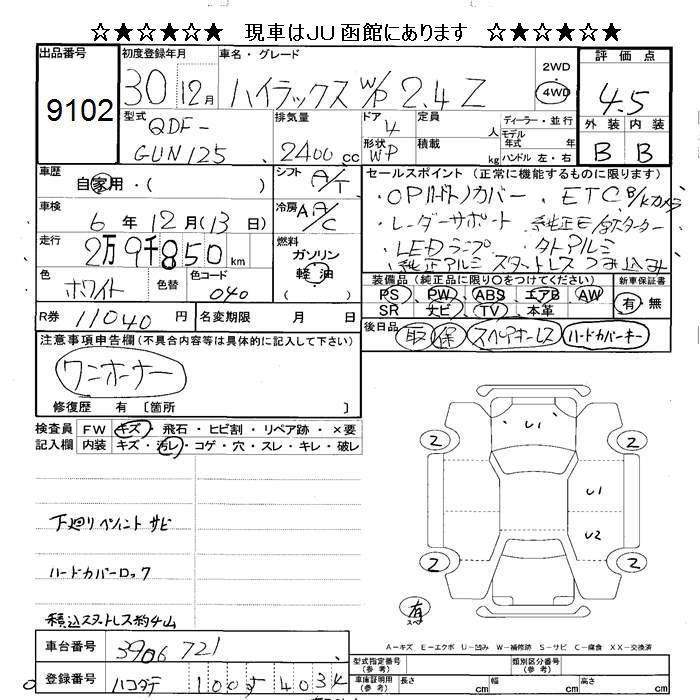 ☆★☆★☆★ 現車はJU函館にあります ☆★☆★☆★
出品番号 初度登録年月 車名・グレード 2WD 4WD 評価点
9102 30 12月 ハイラックス W/P 2.4 Z 4.5
型式 QDF-GUN125 排気量 2400cc ドア 4 定員 人 ディーラー・並行
形状 WP 積載 kg モデル年式 年式 ハンドル 左・右
外装 内装
B B
車歴 自家用・( ) シフト A/T セールスポイント (正常に機能するものに限ります)
車検 6年12月(13日) 冷房 A/C ・OPハードトノカバー ・ETC B/Kカメラ
走行 2万9千850km 燃料 ガソリン 軽油 ・レーダーサポート ・純正E/Gスターター
・LEDランプ ・タトアルミ
・純正アルミスタットレスつみ込み
色 ホワイト 色替 色コード 040
装備品 (純正品に限り○をつけてください) 新車保証書
PS PW ABS エアB AW 有・無
SR ナビ TV 本革
R券 11040円 名変期限 月 日
後日品 取 保 スペアキーレス ハードカバーキー
注意事項申告欄(不具合内容等は具体的に記入して下さい)
ワンオーナー
修復歴 有 〔箇所 〕
検査員記入欄 FW キズ・飛石・ヒビ割・リペア跡・×要
内装 キズ・汚レ・コゲ・穴・スレ・キレ・破レ
U1
2 2
U1
U2
2 2
下廻りペイント サビ
ハードカバーロック
積込スタットレス約4山
有
スペ
A－キズ E－エクボ U－凹み W－補修跡 S－サビ C－腐食 XX－交換済
車台番号 3906721
登録番号 ハコダテ 100す403
型式指定番号(参考) 類別区分番号(参考)
車庫証明用(参考) 長さ cm 幅 cm 高さ cm